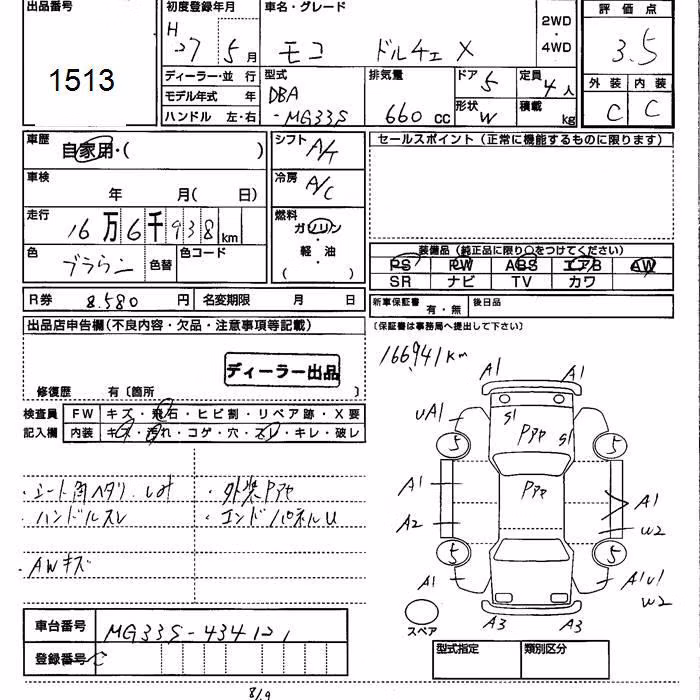 出品番号
1513
初度登録年月
H
27 5月
車名・グレード
モコ ドルチェ X
2WD
・
4WD
評価点
3.5
外装 内装
C C
ディーラー・並 行
モデル年式 年
ハンドル 左・右
型式
DBA
-MG33S
排気量
660 cc
ドア
5
定員
4人
形状
W
積載
kg
車歴
自家用・( )
シフト
A/T
車検
年 月( 日)
冷房
A/C
走行
16万6千938km
燃料
ガソリン
軽・油
( )
色
ブラウン
色替
色コード
R券 8.580 円
名変期限 月 日
セールスポイント(正常に機能するものに限ります)
装備品(純正品に限り○をつけてください)
PS PW ABS エアB AW
SR ナビ TV カワ
新車保証書
有・無
後日品
(保証書は事務局へ提出して下さい)
出品店申告欄(不良内容・欠品・注意事項等記載)
ディーラー出品
修復歴 有〔箇所 〕
検査員
記入欄
FW キズ・飛石・ヒビ割・リペア跡・X要
内装 キズ・汚れ・コゲ・穴・スレ・キレ・破レ
・シート角ヘタリ
・外装Pアセ
・ハンドルスレ
・エンドパネルU
・AWキズ
166941km
A1 A1
UA1
S1
Pアセ
S1
5 5
A1
Pアセ
A1
A2
W2
5 5
A1
A1U1
W2
A3 A3
スペア
車台番号 MG33S-434121
登録番号
型式指定 類別区分
8/9